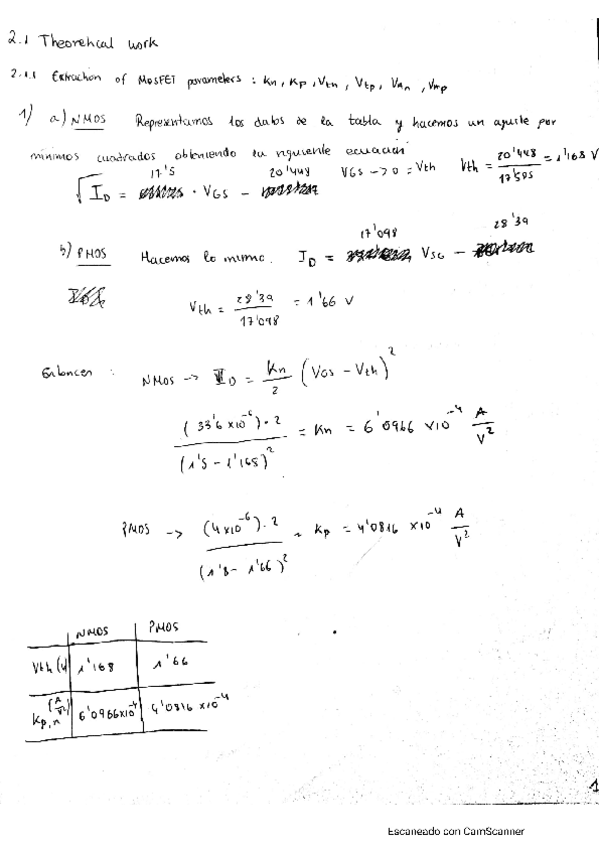 2.1 Theoretical work
2.1.1 Extraction of MOSFET parameters : Kn, Kp, Vtn, Vtp, Vmn, Vmp
1) a) NMOS Representamos los datos de la tabla y hacemos un ajuste por
mínimos cuadrados obteniendo la siguiente ecuación
√I_D = 17'5 · VGS − 20'448 VGS → 0 = Vth Vth = 20'448 / 17'505 = 1'168 V
b) PMOS Hacemos lo mismo. I_D = 17'098 VSG − 28'39
Vth = 28'39 / 17'098 = 1'66 V
Entonces : NMOS → I_D = Kn/2 (VGS − Vth)^2
(33'6 x10^-6) · 2 / (1'5 − 1'168)^2 = Kn = 6'0966 x10^-4 A/V^2
PMOS → (4x10^-6) · 2 / (1'8 − 1'66)^2 = Kp = 4'0816 x10^-4 A/V^2
NMOS PMOS
Vth (V) 1'168 1'66
Kp,n (A/V^2) 6'0966x10^-4 4'0816 x10^-4
1
Escaneado con CamScanner